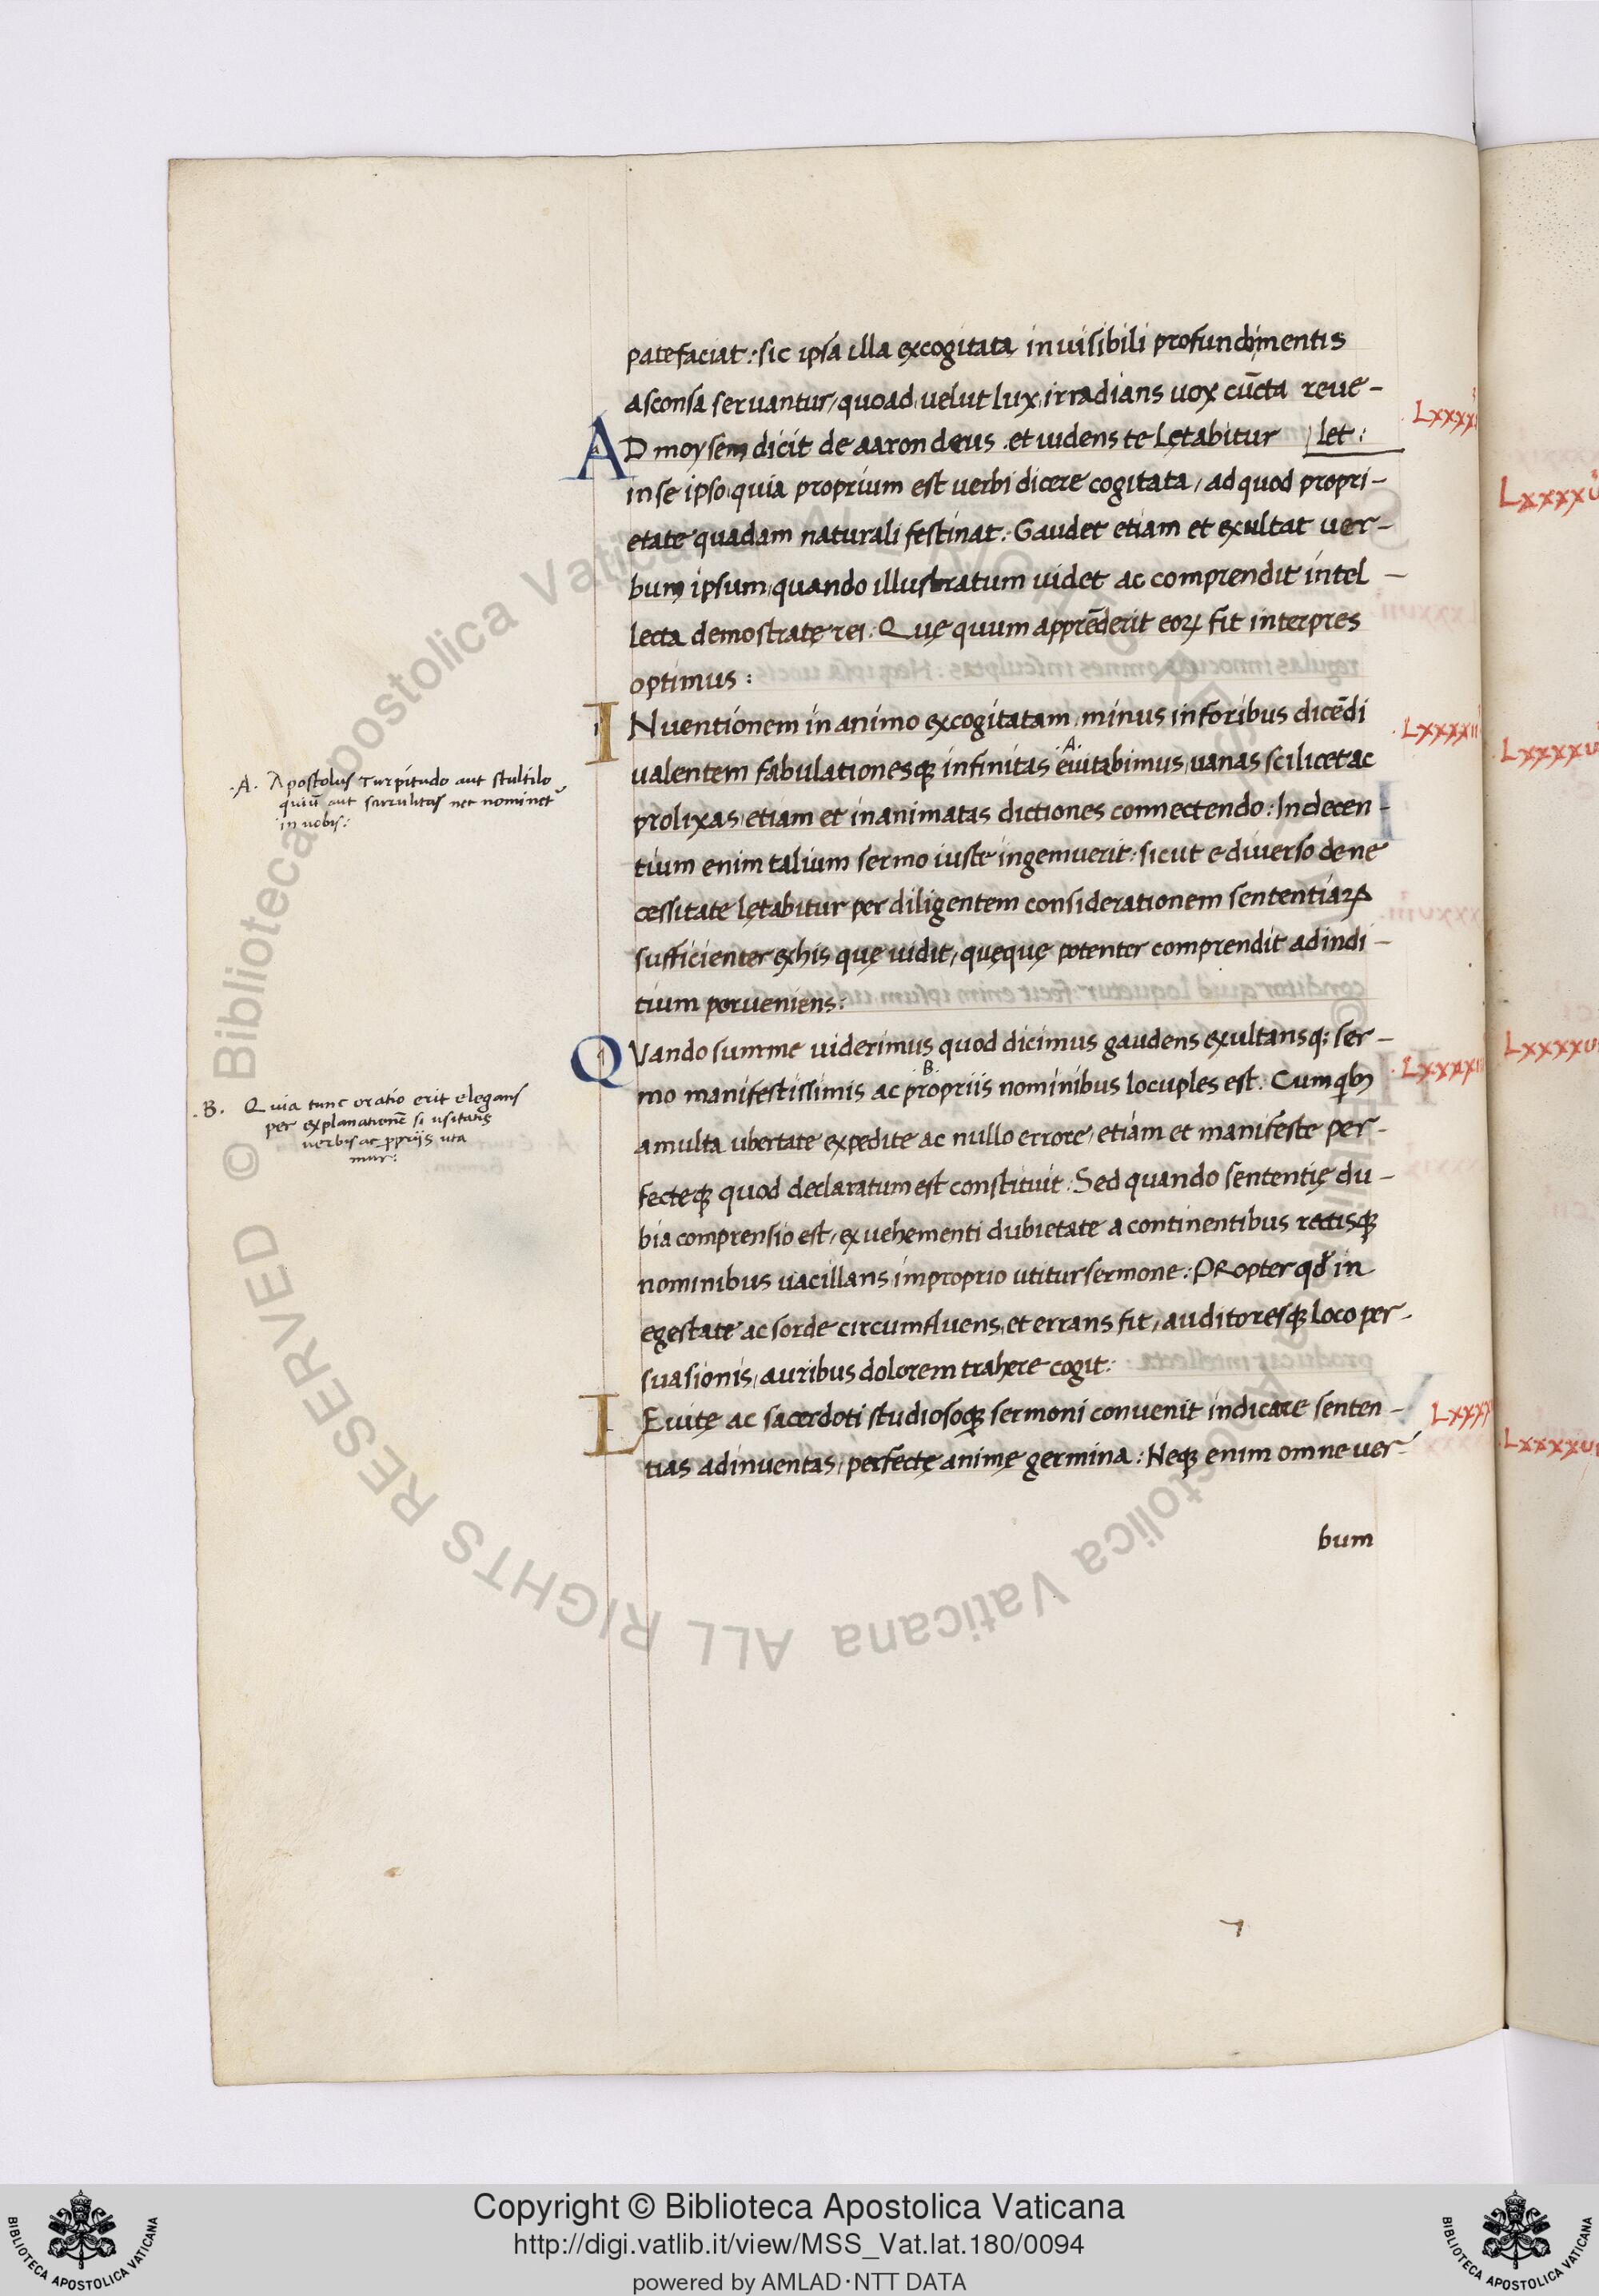 patefaciat: sic ipsa illa excogitata, invisibili profundimentis
asconsa servantur, quoad velut lux irradians uox cūcta reue-
.Lxxxxi
AD moysem dicit de aaron deus .et uidens te lętabitur let:
in se ipso, quia proprium est uerbi dicere cogitata, ad quod propri-
etate quadam naturali festinat. Gaudet etiam et exultat uer-
bum ipsum, quando illustratum uidet ac comprendit intel-
lecta demostratę rei. Quę quum apprēderit eoꝝ fit interpres
optimus:
INuentionem in animo excogitatam, minus in foribus dicēdi
.Lxxxxii
ualentem fabulationesqꝫ infinitas .A. euitabimus, uanas scilicet ac
prolixas, etiam et inanimatas dictiones connectendo: Indecen-
tium enim talium sermo iuste ingemuerit: sicut e diuerso de ne
cessitate lętabitur per diligentem considerationem sententiaꝝ
sufficienter ex his quę uidit, quęquę potenter comprendit ad indi-
tium perueniens:
QVando summe uiderimus quod dicimus gaudens exultansqꝫ ser-
mo manifestissimis ac .B. propriis nominibus locuples est. Cum qbꝫ
.Lxxxxii
a multa ubertate expedite ac nullo errore, etiam et manifeste per-
fecteqꝫ quod declaratum est constituit. Sed quando sententię du-
bia comprensio est, ex uehementi dubietate a continentibus rectisqꝫ
nominibus uacillans, improprio utitur sermone: PRopter qđ in
egestate ac sorde circumfluens, et errans fit, auditoresqꝫ loco per-
suasionis, auribus dolorem trahere cogit:
LEuitę ac sacerdoti studiosoqꝫ sermoni conuenit indicare senten-
Lxxxx
tias adinuentas, perfectę animę germina: Neqꝫ enim omne uer-
bum
.A. Apostolus Turpitudo aut stultilo
quiū aut scurrilitas nec nominet̄
in uobis:
.B. Quia tunc oratio erit elegans
per explanationē si usitatis
uerbis ac ꝓpriis uta
mur:
Lxxxxv
Lxxxxv
Lxxxxv
Lxxxxv
© Biblioteca Apostolica Vaticana ALL RIGHTS RESERVED
© Biblioteca Apostolica Vaticana ALL RIGHTS RESERVED
Copyright © Biblioteca Apostolica Vaticana
http://digi.vatlib.it/view/MSS_Vat.lat.180/0094
powered by AMLAD·NTT DATA
BIBLIOTECA APOSTOLICA VATICANA
BIBLIOTECA APOSTOLICA VATICANA